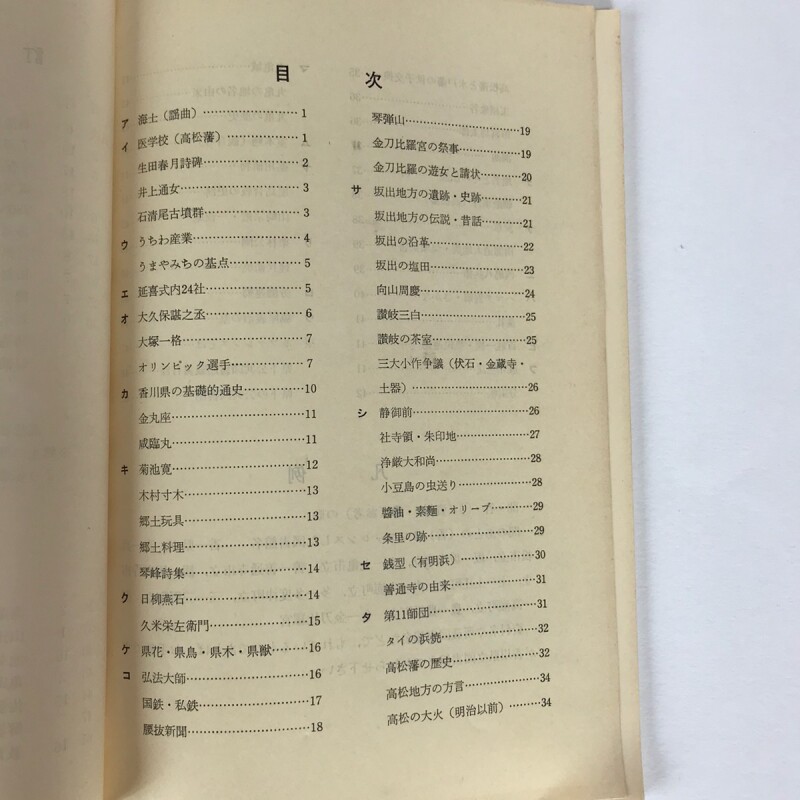 目次
ア 海士（謡曲）…………………1
イ 医学校（高松藩）……………1
生田春月詩碑……………………2
井上通女…………………………3
石清尾古墳群……………………3
ウ うちわ産業……………………4
うまやみちの基点………………5
エ 延喜式内24社…………………5
オ 大久保諶之丞…………………6
大塚一格…………………………7
オリンピック選手………………7
カ 香川県の基礎的通史…………10
金丸座……………………………11
咸臨丸……………………………11
キ 菊池寛…………………………12
木村寸木…………………………13
郷土玩具…………………………13
郷土料理…………………………13
琴峰詩集…………………………14
ク 日柳燕石………………………14
久米栄左衛門……………………15
ケ 県花・県鳥・県木・県獣……16
コ 弘法大師………………………16
国鉄・私鉄………………………17
腰抜新聞…………………………18
琴弾山……………………………19
金刀比羅宮の祭事………………19
金刀比羅の遊女と請状…………20
サ 坂出地方の遺跡・史跡………21
坂出地方の伝説・昔話…………21
坂出の沿革………………………22
坂出の塩田………………………23
向山周慶…………………………24
讃岐三白…………………………25
讃岐の茶室………………………25
三大小作争議（伏石・金蔵寺・
土器）……………………………26
シ 静御前…………………………26
社寺領・朱印地…………………27
浄厳大和尚………………………28
小豆島の虫送り…………………28
醬油・素麵・オリーブ…………29
条里の跡…………………………29
セ 銭型（有明浜）………………30
善通寺の由来……………………31
タ 第11師団………………………31
タイの浜焼………………………32
高松藩の歴史……………………32
高松地方の方言…………………34
高松の大火（明治以前）………34